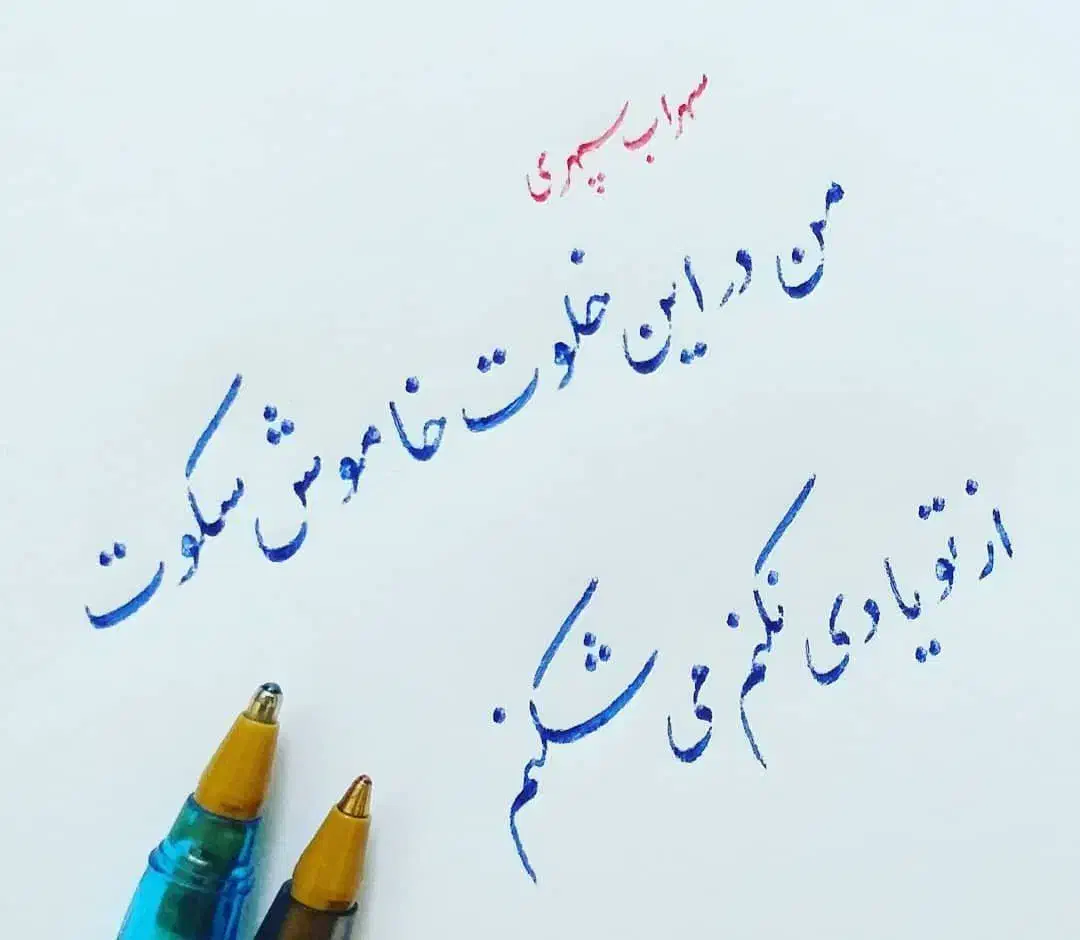 سهراب سپهری
من در این خلوت خاموش سکوت
از تو یادی نکنم می شکنم